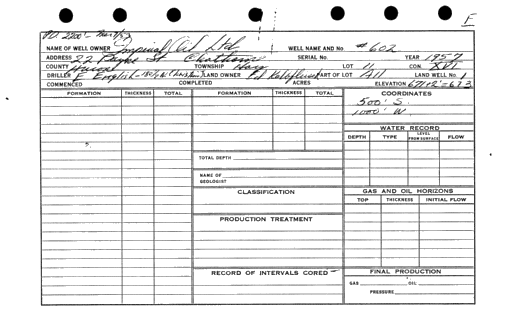 E
P.D. 2200'- Mar 1/57
NAME OF WELL OWNER Imperial Oil Ltd WELL NAME AND No. #602
ADDRESS 22 St Chatham SERIAL No. YEAR 1957
COUNTY Huron TOWNSHIP Hay LOT 11 CON. XVI
DRILLER E English LAND OWNER PART OF LOT All LAND WELL No. 1
COMMENCED COMPLETED ACRES ELEVATION 671+2'=673
FORMATION THICKNESS TOTAL FORMATION THICKNESS TOTAL COORDINATES
500' S.
1000' W.
WATER RECORD
DEPTH TYPE LEVEL FROM SURFACE FLOW
TOTAL DEPTH
NAME OF GEOLOGIST
CLASSIFICATION GAS AND OIL HORIZONS
TOP THICKNESS INITIAL FLOW
PRODUCTION TREATMENT
RECORD OF INTERVALS CORED FINAL PRODUCTION
GAS OIL
PRESSURE